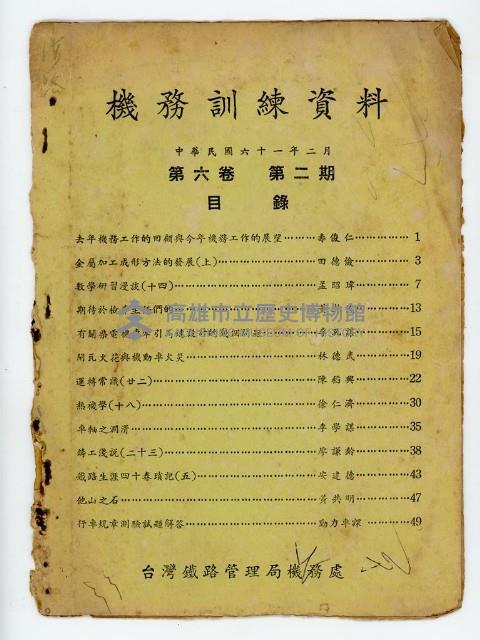 機務訓練資料
中華民國六十一年二月
第六卷 第二期
目錄
去年機務工作的回顧與今年機務工作的展望………秦俊仁…………1
金屬加工成形方法的發展(上)………田德儉…………3
數學研習漫談(十四)………孟昭瑋…………7
期待於檢 們的………13
高雄市立歷史博物館
有關柴電機車牽引馬達設計的幾個問題………15
閘瓦火花與機動車火災………林德武…………19
運轉常識(廿二)………陳稻興…………22
熱機學(十八)………徐仁濟…………30
車軸之潤滑………李學謀…………35
鑄工淺説(二十三)………廖謙齡…………38
鐵路生涯四十春瑣記(五)………安建德…………43
他山之石………黃共明…………47
行車規章測驗試題解答………動力車課…………49
台灣鐵路管理局機務處